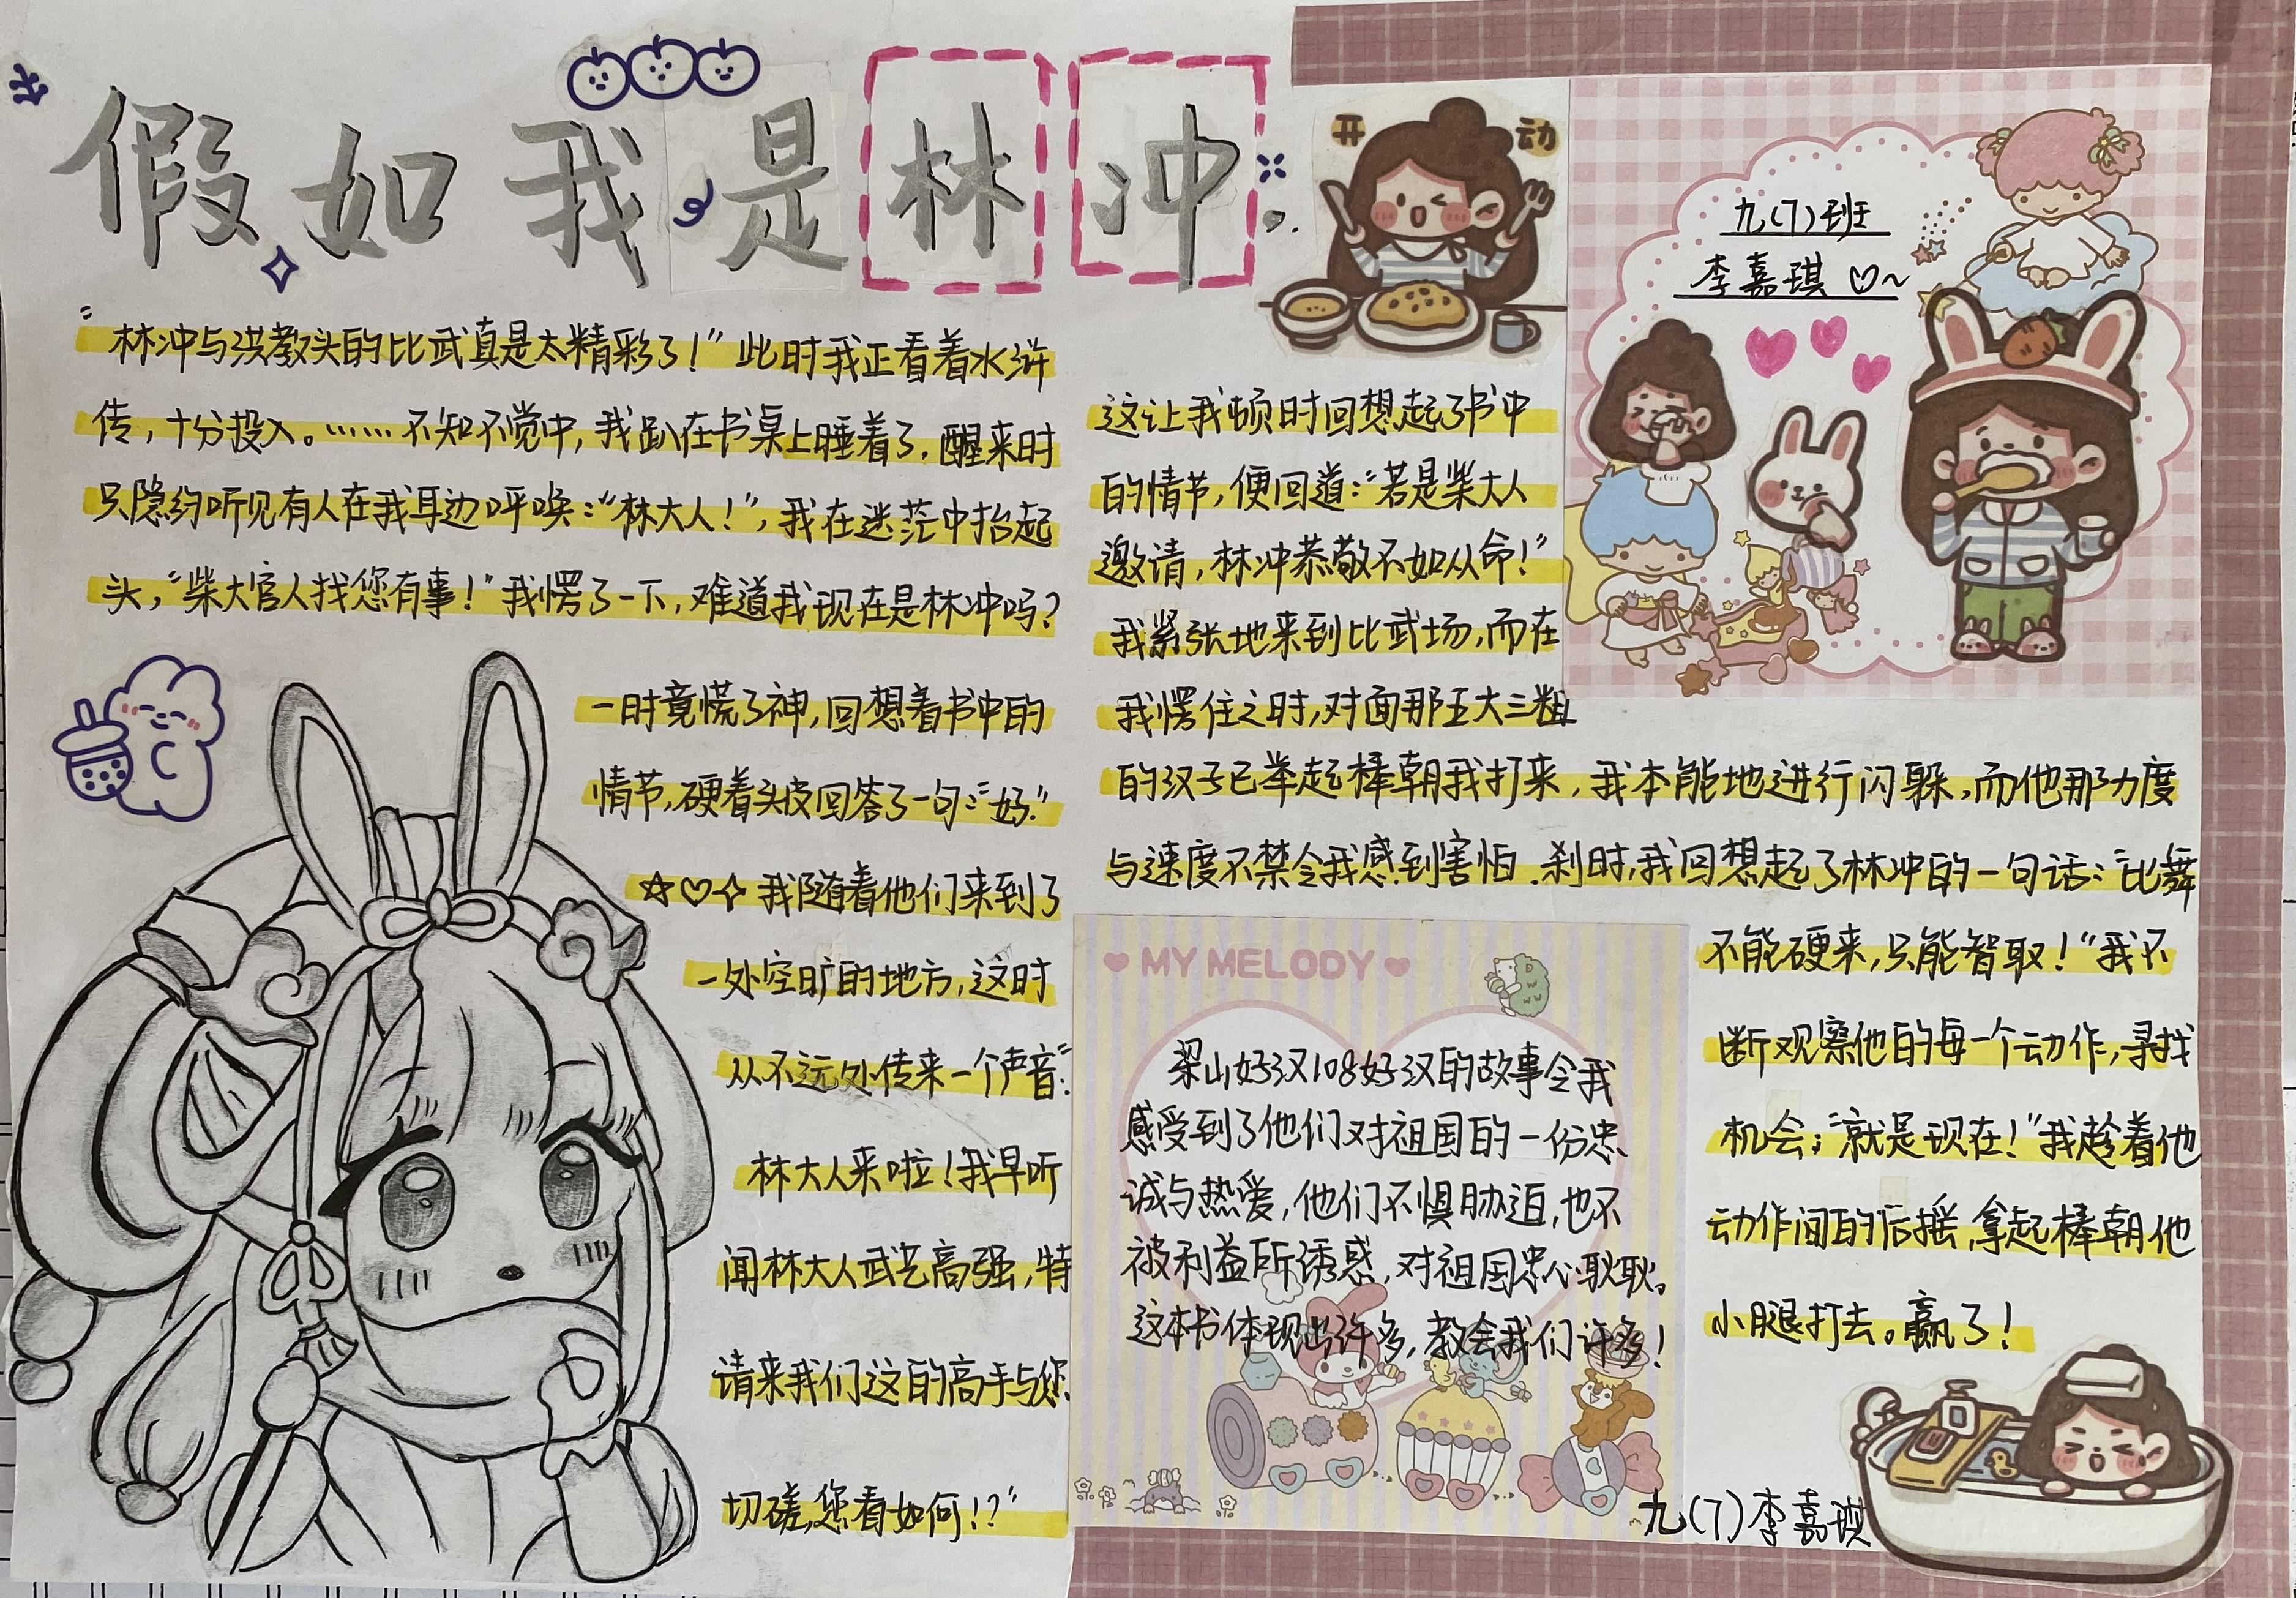 假如我是林冲
“林冲与洪教头的比武真是太精彩了！”此时我正看着水浒
传，十分投入。……不知不觉中，我趴在书桌上睡着了．醒来时
只隐约听见有人在我耳边呼唤：“林大人！”，我在迷茫中抬起
头，“柴大官人找您有事！”我愣了一下，难道我现在是林冲吗？
一时竟慌了神，回想着书中的
情节，硬着头皮回答了一句：“好．”
☆♡✧我随着他们来到了
一处空旷的地方，这时
从不远处传来一个声音：“
林大人来啦！我早听
闻林大人武艺高强，特
请来我们这的高手与您
切磋，您看如何！？”
开动
九（7）班
李嘉琪♡~
这让我顿时回想起了书中
的情节，便回道：“若是柴大人
邀请，林冲恭敬不如从命！”
我紧张地来到比武场，而在
我愣住之时，对面那五大三粗
的汉子已举起棒朝我打来，我本能地进行闪躲，而他那力度
与速度不禁令我感到害怕．刹时，我回想起了林冲的一句话：“比舞
不能硬来，只能智取！”我不
断观察他的每一个动作，寻找
机会：“就是现在！”我趁着他
动作间的后摇，拿起棒朝他
小腿打去。赢了！
MY MELODY
梁山好汉108好汉的故事令我
感受到了他们对祖国的一份忠
诚与热爱，他们不惧胁迫，也不
被利益所诱惑，对祖国忠心耿耿。
这本书体现出许多，教会我们许多！
九（7）李嘉琪